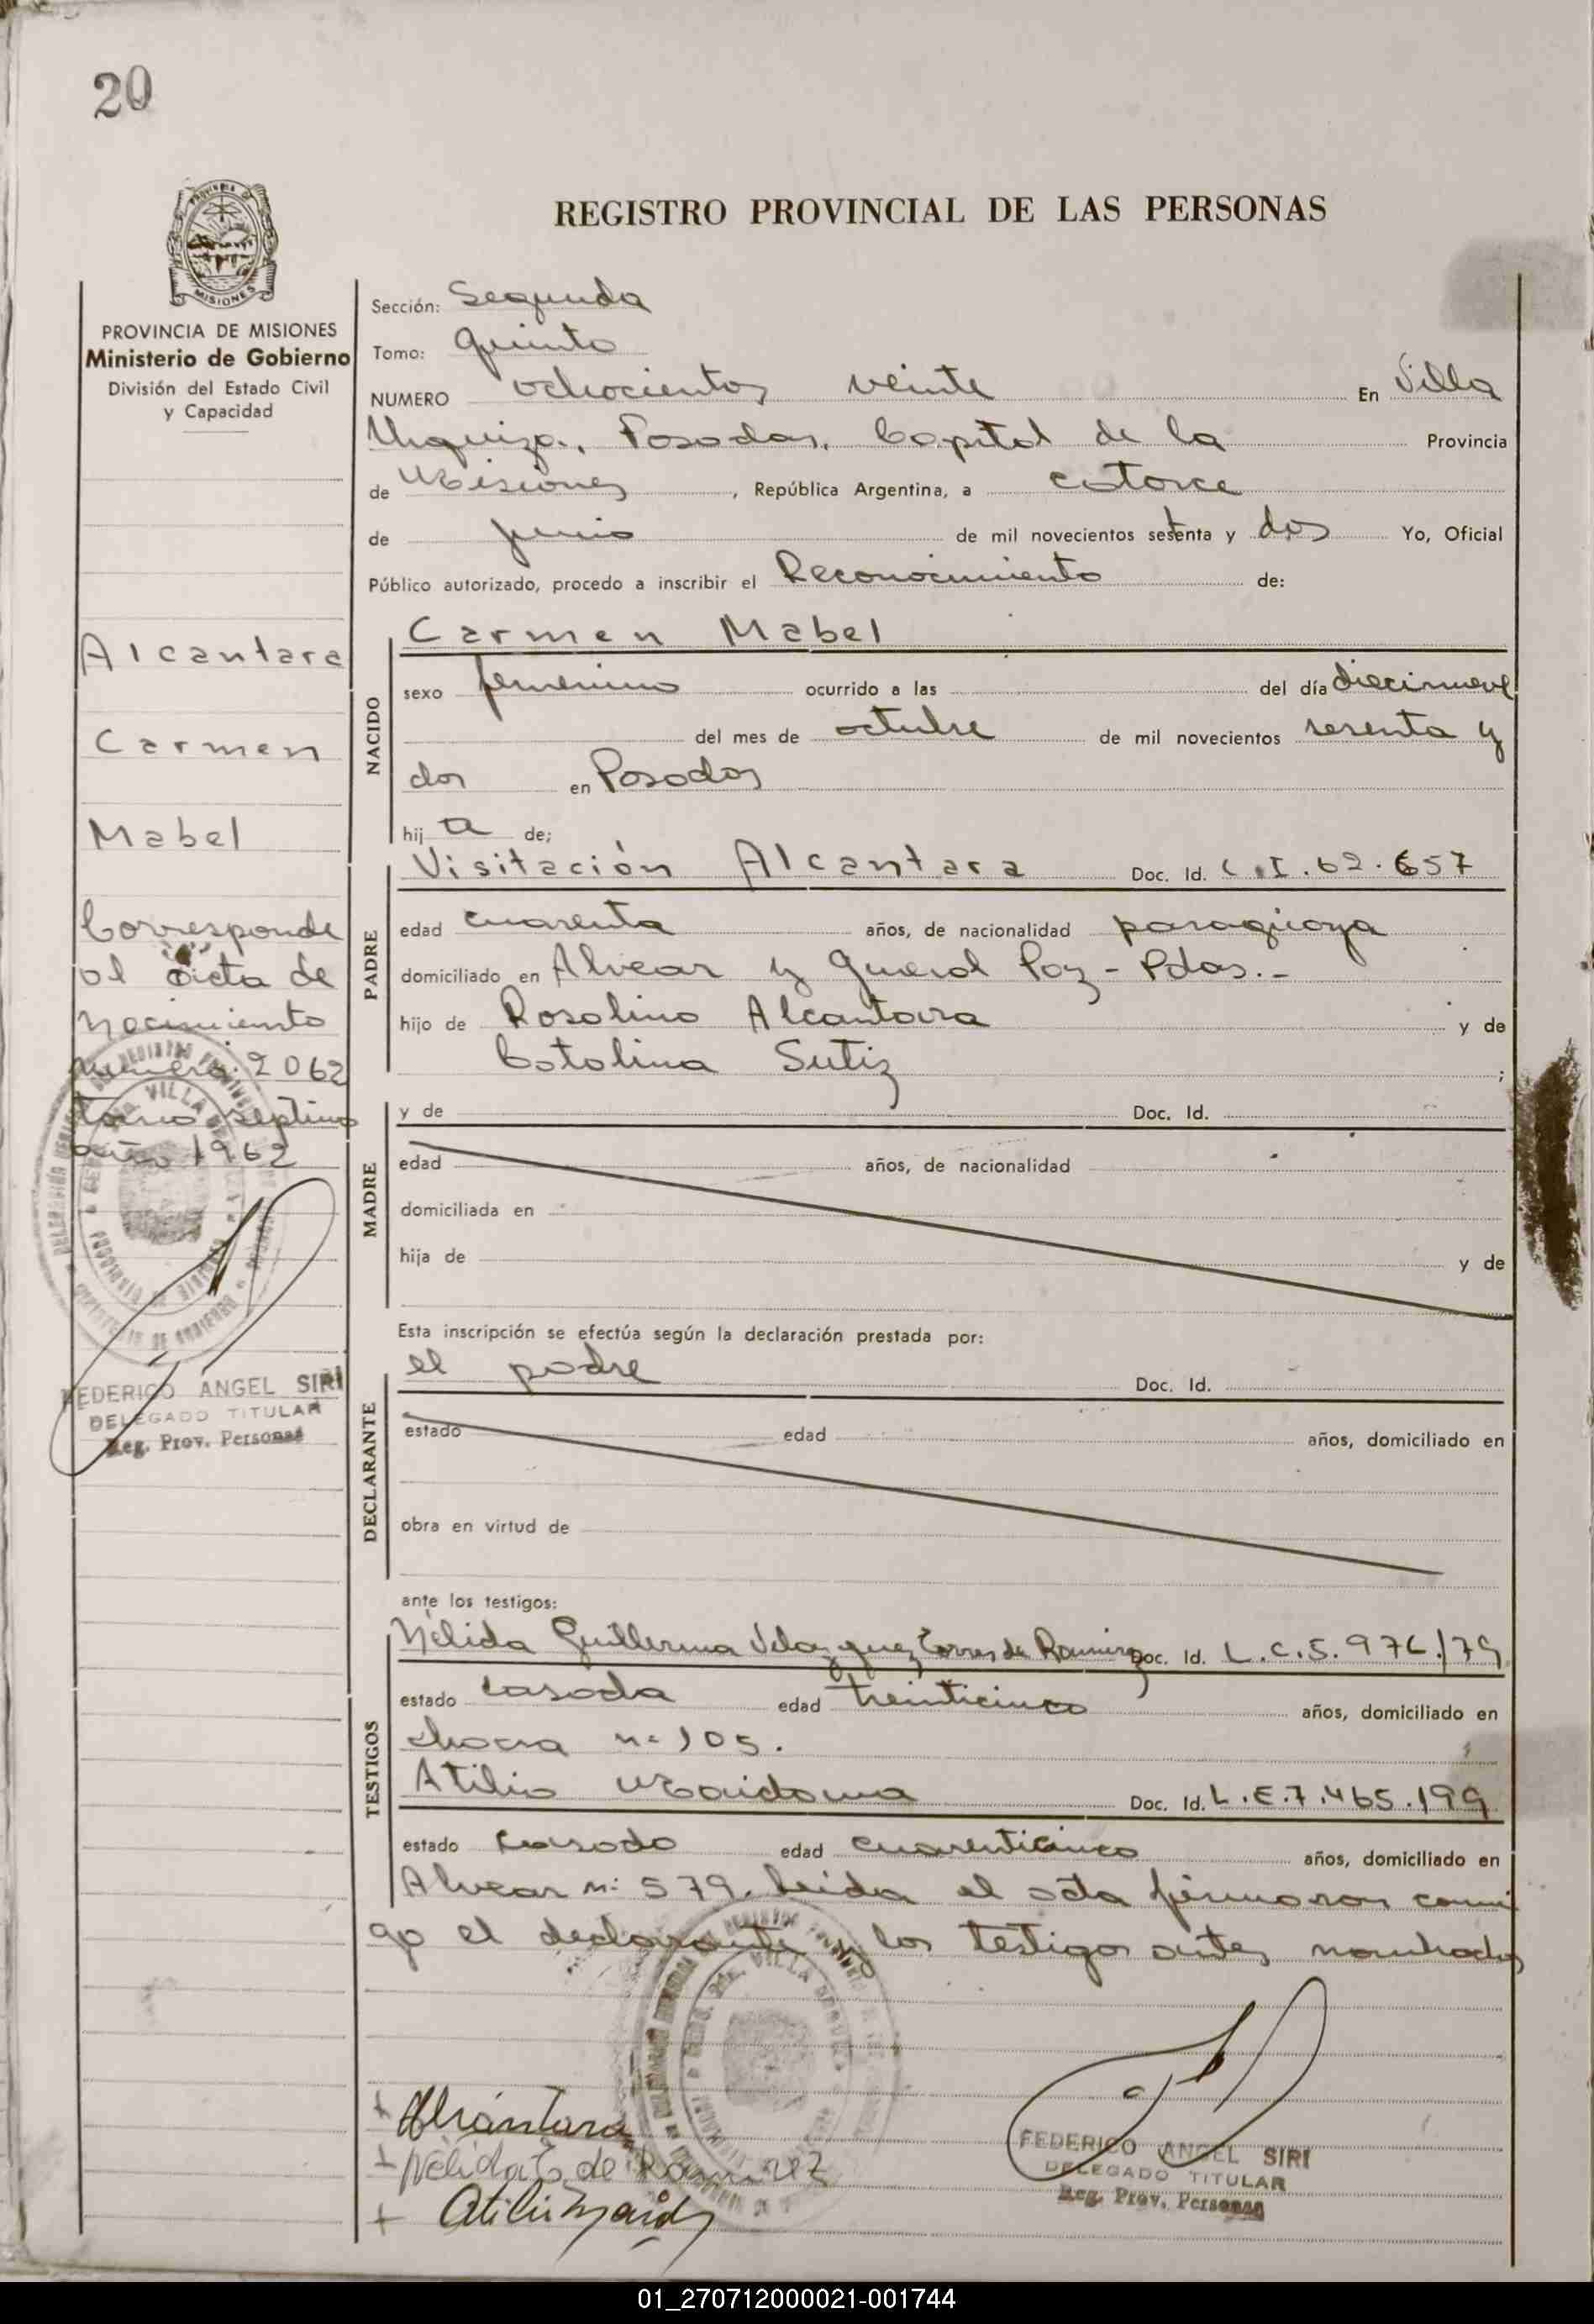 20
REGISTRO PROVINCIAL DE LAS PERSONAS
MISIONES
PROVINCIA DE MISIONES
Ministerio de Gobierno
División del Estado Civil
y Capacidad
Alcantara
Carmen
Mabel
Corresponde
al acta de
nacimiento
número: 2062
tomo septimo
año 1962
FEDERICO ANGEL SIRI
DELEGADO TITULAR
Reg. Prov. Personas
Sección: Segunda
Tomo: Quinto
NUMERO ochocientos veinte En Villa
Urquiza, Posadas, Capital de la Provincia
de Misiones, República Argentina, a catorce
de junio de mil novecientos setenta y dos Yo, Oficial
Público autorizado, procedo a inscribir el Reconocimiento de:
NACIDO
Carmen Mabel
sexo femenino ocurrido a las del día diecinueve
del mes de octubre de mil novecientos sesenta y
dos en Posadas
hij a de;
PADRE
Visitación Alcantara Doc. Id. C.I. 62.657
edad cuarenta años, de nacionalidad paraguaya
domiciliado en Alvear y Gueral Paz - Pdas.-
hijo de Rosolino Alcantara y de
Catalina Sutiz ;
MADRE
y de Doc. Id.
edad años, de nacionalidad
domiciliada en
hija de y de
Esta inscripción se efectúa según la declaración prestada por:
DECLARANTE
el padre Doc. Id.
estado edad años, domiciliado en
obra en virtud de
ante los testigos:
TESTIGOS
Nélida Guillerma Velazquez Torres de Ramirez Doc. Id. L.C.5.976.179
estado casada edad treinticinco años, domiciliado en
chacra nº 105.
Atilio Maidana Doc. Id. L.E.7.465.199
estado casado edad cuarenticinco años, domiciliado en
Alvear nº 579. Leída el acta firmaron conmi
go el declarante y los testigos antes nombrados
Alcántara
Nélida T. de Ramirez
FEDERICO ANGEL SIRI
DELEGADO TITULAR
Reg. Prov. Personas
01_270712000021-001744